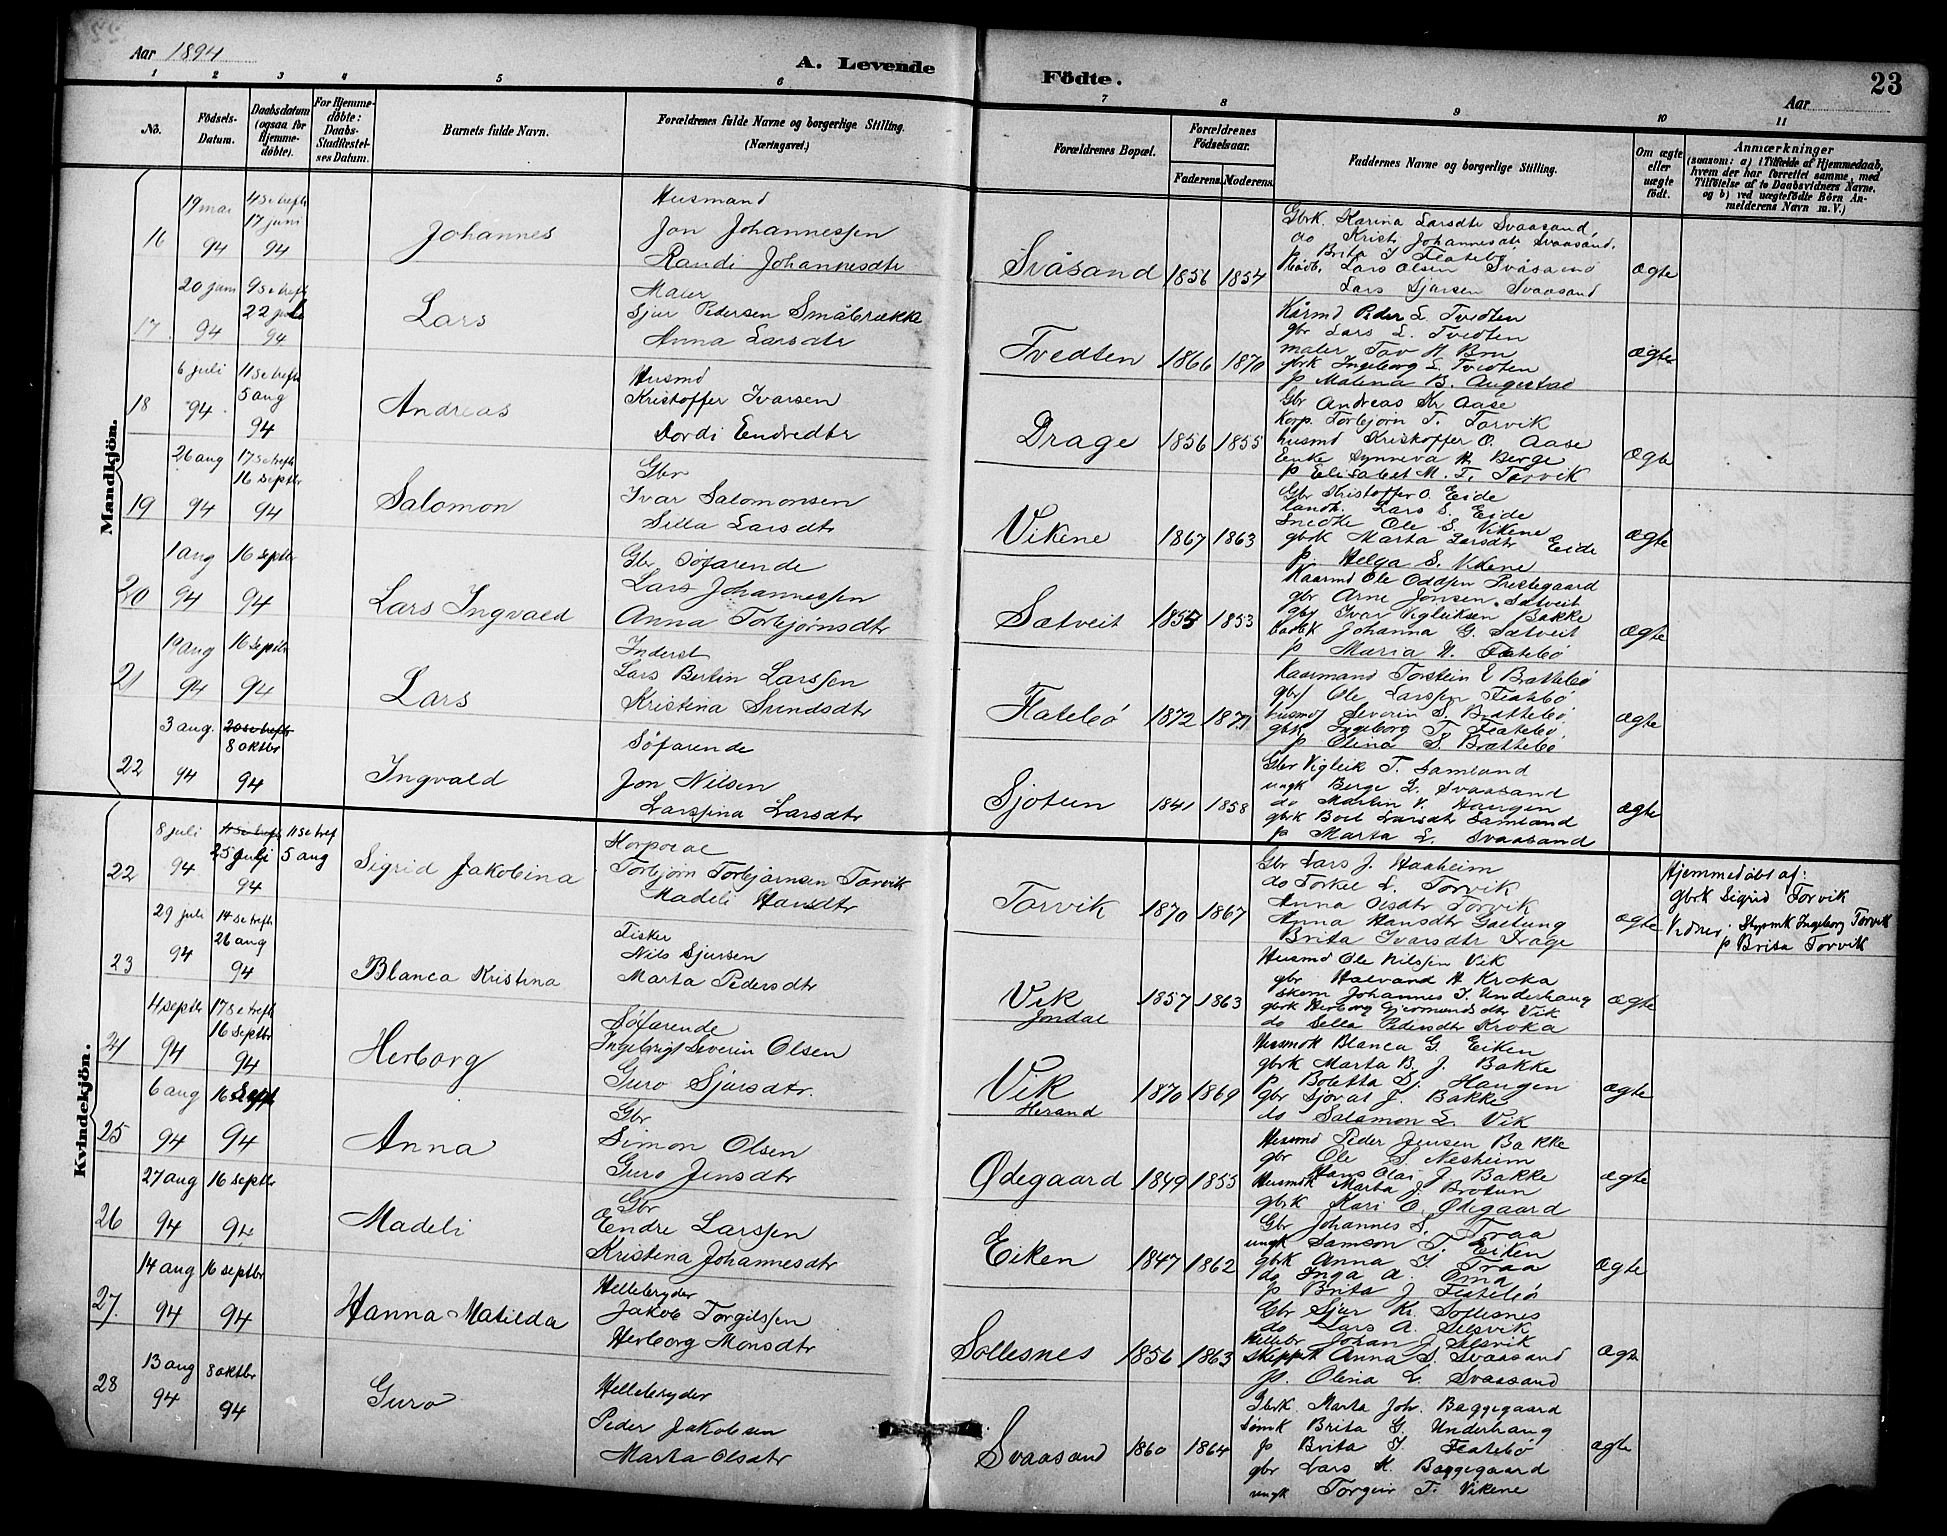 Aar 1894
A. Levende
Födte.
23
Aar
1 2 3 4 5 6 7 8 9 10 11
No.
Födsels-Datum.
Daabsdatum (ogsaa for Hjemme-döbte).
For Hjemme-döbte: Daabs-Stadfæstelses Datum.
Barnets fulde Navn.
Forældrenes fulde Navne og borgerlige Stilling. (Næringsvei.)
Forældrenes Bopæl.
Forældrenes Födselsaar.
Faderens. Moderens.
Faddernes Navne og borgerlige Stilling.
Om ægte eller uægte födt.
Anmærkninger
(saasom: a) i Tilfælde af Hjemmedaab, hvem der har forrettet samme, med Tilföielse af to Daabsvidners Navne. og b) ved uægtefödte Börn Anmelderens Navn m. V.)
Mandkjön.
16
19 mai 94
17 juni 94
Johannes
Husmand
Jon Johannessen
Randi Johannesdtr
Svåsand
1856 1854
Gbrk Karina Larsdtr Svaasand,
do Kristi Johannesdtr Svaasand,
p Brita I Flatebø
Lars Olsen Svåsand
Lars Sjursen Svaasand
ægte
17
20 juni 94
22 juli 94
Lars
Maler
Sjur Pedersen Småbrække
Anna Larsdtr
Tvedten
1866 1870
Kårmd Peder L. Tvedten
gbr Lars L. Tvedten
maler Tav H Bru
gbrk Ingeborg L. Tvedten
p Malena B. Augestad
ægte
18
6 juli 94
5 aug 94
Andreas
Husmd
Kristoffer Ivarsen
Dordi Endredtr
Drage
1856 1855
Gbr Andreas Kr Aase
Korp. Torbjørn T. Torvik
husmd Kristoffer O. Aase
Enke Synneva H. Berge
p Elisabet M. T. Torvik
ægte
19
26 aug 94
16 septbr 94
Salomon
Gbr
Ivar Salomonsen
Sella Larsdtr
Vikene
1867 1863
Gbr Kristoffer O. Eide
landh. Lars S. Eide
Snedke Ole S. Vikene
gbrk Marta Larsdtr Eide
p. Helga S. Vikene
ægte
20
1 aug 94
16 septbr 94
Lars Ingvald
Gbr Søfarende
Lars Johannessen
Anna Torbjørnsdtr
Sætveit
1853
Kaarmd Ole Oddsen Prestegaard
gbr Arne Jonsen Sætveit
gbr Ivar Vigleiksen Bakke
Johanna G. Sætveit
p Maria N. Flatebø
ægte
21
aug 94
16 septbr 94
Lars
Inderst
Lars Bertin Larssen
Kristina Sundsdtr
Flatebø
1872 1871
Kaarmand Torstein E Brattebø
gbr Ole Larssen Flatebø
husmd Severin S. Brattebø
gbrk Ingeborg T. Flatebø
p Olina S. Brattebø
ægte
22
3 aug. 94
8 oktbr 94
Ingvald
Søfarende
Jon Nilsen
Larssina Larsdtr
Sjotun
1841 1858
Gbr Vigleik T. Samland
ungk Berge L. Svaasand
do Martin V. Haugen
gbrk Boel Larsdtr Samland
p Marta L. Svaasand
ægte
Kvindekjön.
22
8 juli 94
25 juli 94
5 aug
Sigrid Jakobina
Korporal
Torbjørn Torbjørnsen Torvik
Madeli Hansdtr
Torvik
1870 1867
Gbr Lars J. Haaheim
do Torkel L. Torvik
Anna Olsdtr Torvik
Anna Hansdtr Gjetung
Brita Ivarsdtr Drage
ægte
Hjemmedöbt af:
gbrk Sigrid Torvik
Ingeborg Torvik
p Brita Torvik
23
29 juli 94
26 aug 94
Blanca Kristina
Fisker
Nils Sjursen
Marta Pedersdtr
Vik
Jondal
1857 1863
Husmd Ole Nilssen Vik
gbr Halvard H Kroka
skom Johannes T. Underhaug
gbrk Herborg Gjermundsdtr Vik
do Sella Pedersdtr Kroka
ægte
24
4 septbr 94
16 septbr 94
Herborg
Søfarende
Ingebrigt Severin Olsen
Guro Sjursdtr.
Vik
Herand
1870 1869
Husmdk Blanca G. Eiken
gbrk Marta B. J. Bakke
p Boletta Sj. Haugen
gbr Sjovat J. Bakke
do Salamon L. Vik
ægte
25
6 aug 94
16 sept 94
Anna
Gbr
Simon Olsen
Guro Jensdtr
Ødegaard
1849 1855
Husmd Peder Jensen Bakke
gbr Ole S. Nesheim
Hans Olai J Bakke
Husmdk Marta J. Brotun
gbrk Kari O. Ødegaard
ægte
26
27 aug 94
16 septbr 94
Madeli
Gbr
Endre Larssen
Kristina Johannesdtr
Eiken
1847 1862
Gbr Johannes L. Traa
ungk Samson T. Eiken
gbrk Anna I. Traa
do Inga A. Oma
p Brita J Flatebø
ægte
27.
14 aug 94
16 septbr 94
Hanna Matilda
Hellebryder
Jakob Torgilssen
Herborg Monsdtr
Sollesnes
1856 1863
Gbr Sjur Kr. Sollesnes
do Lars A. Selsvik
Hellebr Johan J Selsvik
Anna S. Svaasand
p. Olina L. Svaasand
ægte
28
13 aug 94
8 oktbr 94
Guro
Hellebryder
Peder Jakobsen
Marta Olsdtr
Svaasand
1860 1864
Gbrk. Marta Joh. Baggegaard
Brita G. Underhaug
p Brita I. Flatebø
gbr Lars M. Baggegaard
ungk Torgeir T. Vikene
ægte